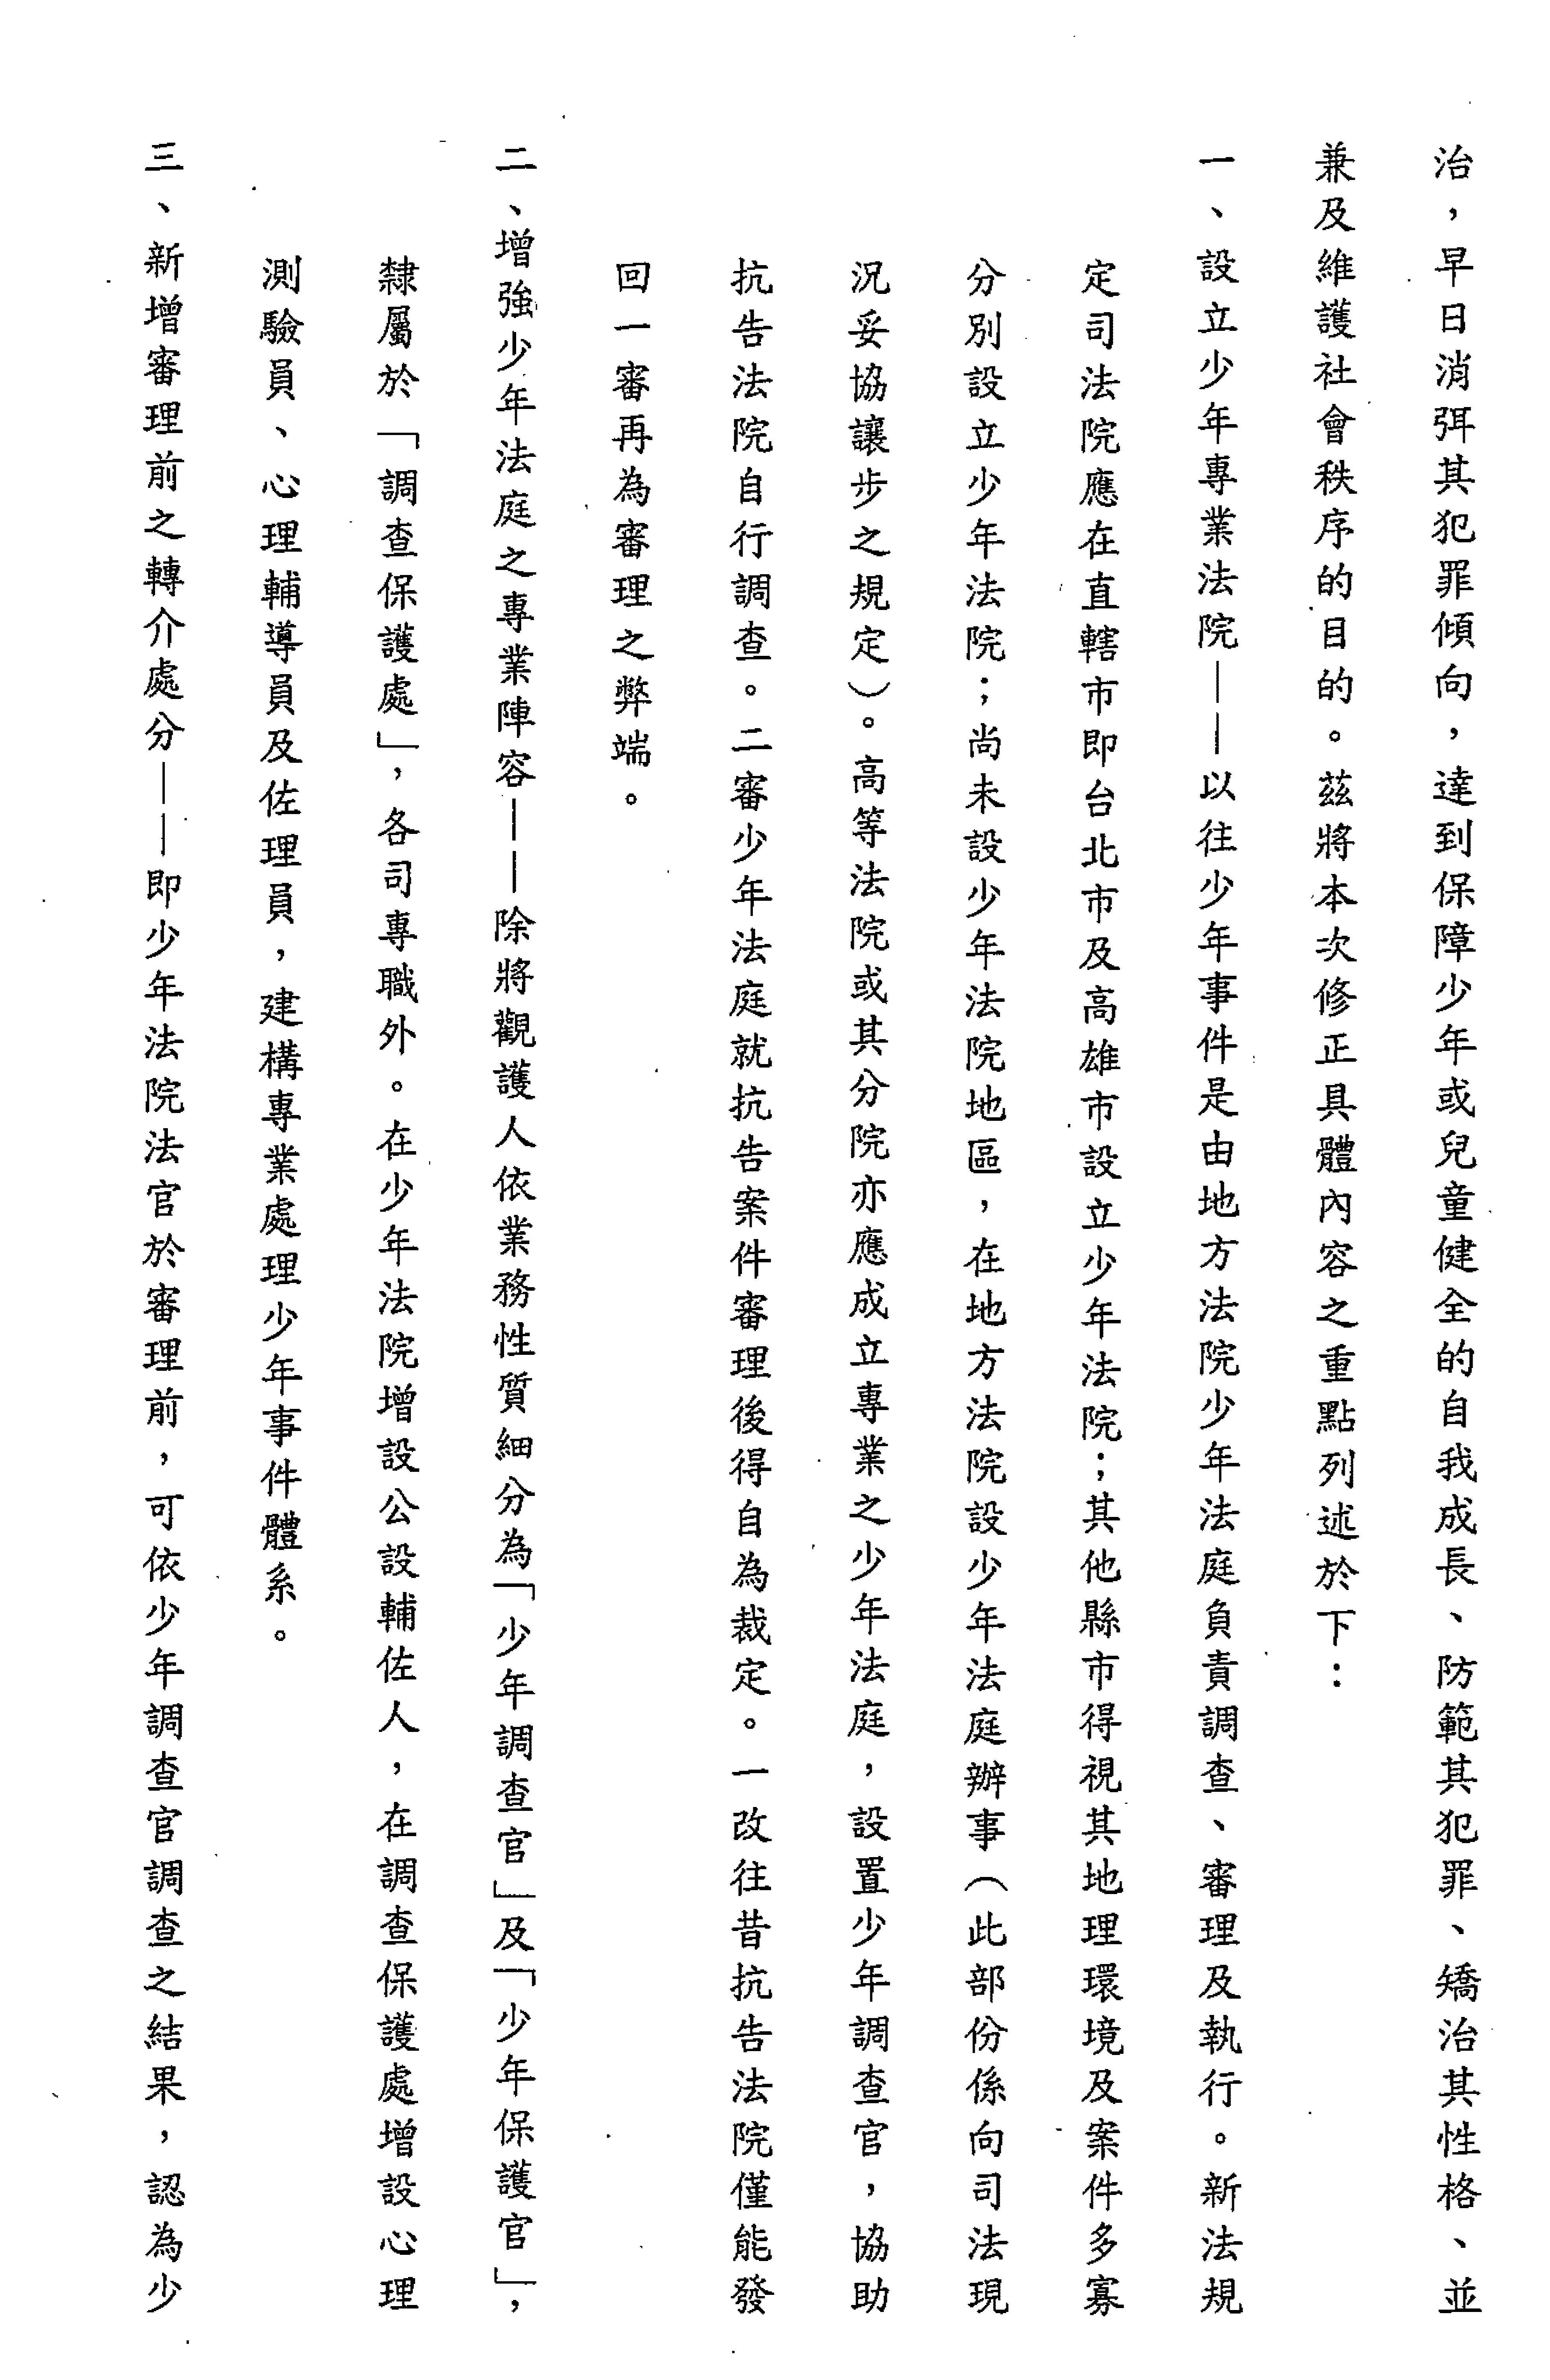 治，早日消弭其犯罪傾向，達到保障少年或兒童健全的自我成長、防範其犯罪、矯治其性格、並
兼及維護社會秩序的目的。茲將本次修正具體內容之重點列述於下：
一、設立少年專業法院——以往少年事件是由地方法院少年法庭負責調查、審理及執行。新法規
定司法院應在直轄市即台北市及高雄市設立少年法院；其他縣市得視其地理環境及案件多寡
分別設立少年法院；尚未設少年法院地區，在地方法院設少年法庭辦事（此部份係向司法現
況妥協讓步之規定）。高等法院或其分院亦應成立專業之少年法庭，設置少年調查官，協助
抗告法院自行調查。二審少年法庭就抗告案件審理後得自為裁定。一改往昔抗告法院僅能發
回一審再為審理之弊端。
二、增強少年法庭之專業陣容——除將觀護人依業務性質細分為「少年調查官」及「少年保護官」，
隸屬於「調查保護處」，各司專職外。在少年法院增設公設輔佐人，在調查保護處增設心理
測驗員、心理輔導員及佐理員，建構專業處理少年事件體系。
三、新增審理前之轉介處分——即少年法院法官於審理前，可依少年調查官調查之結果，認為少